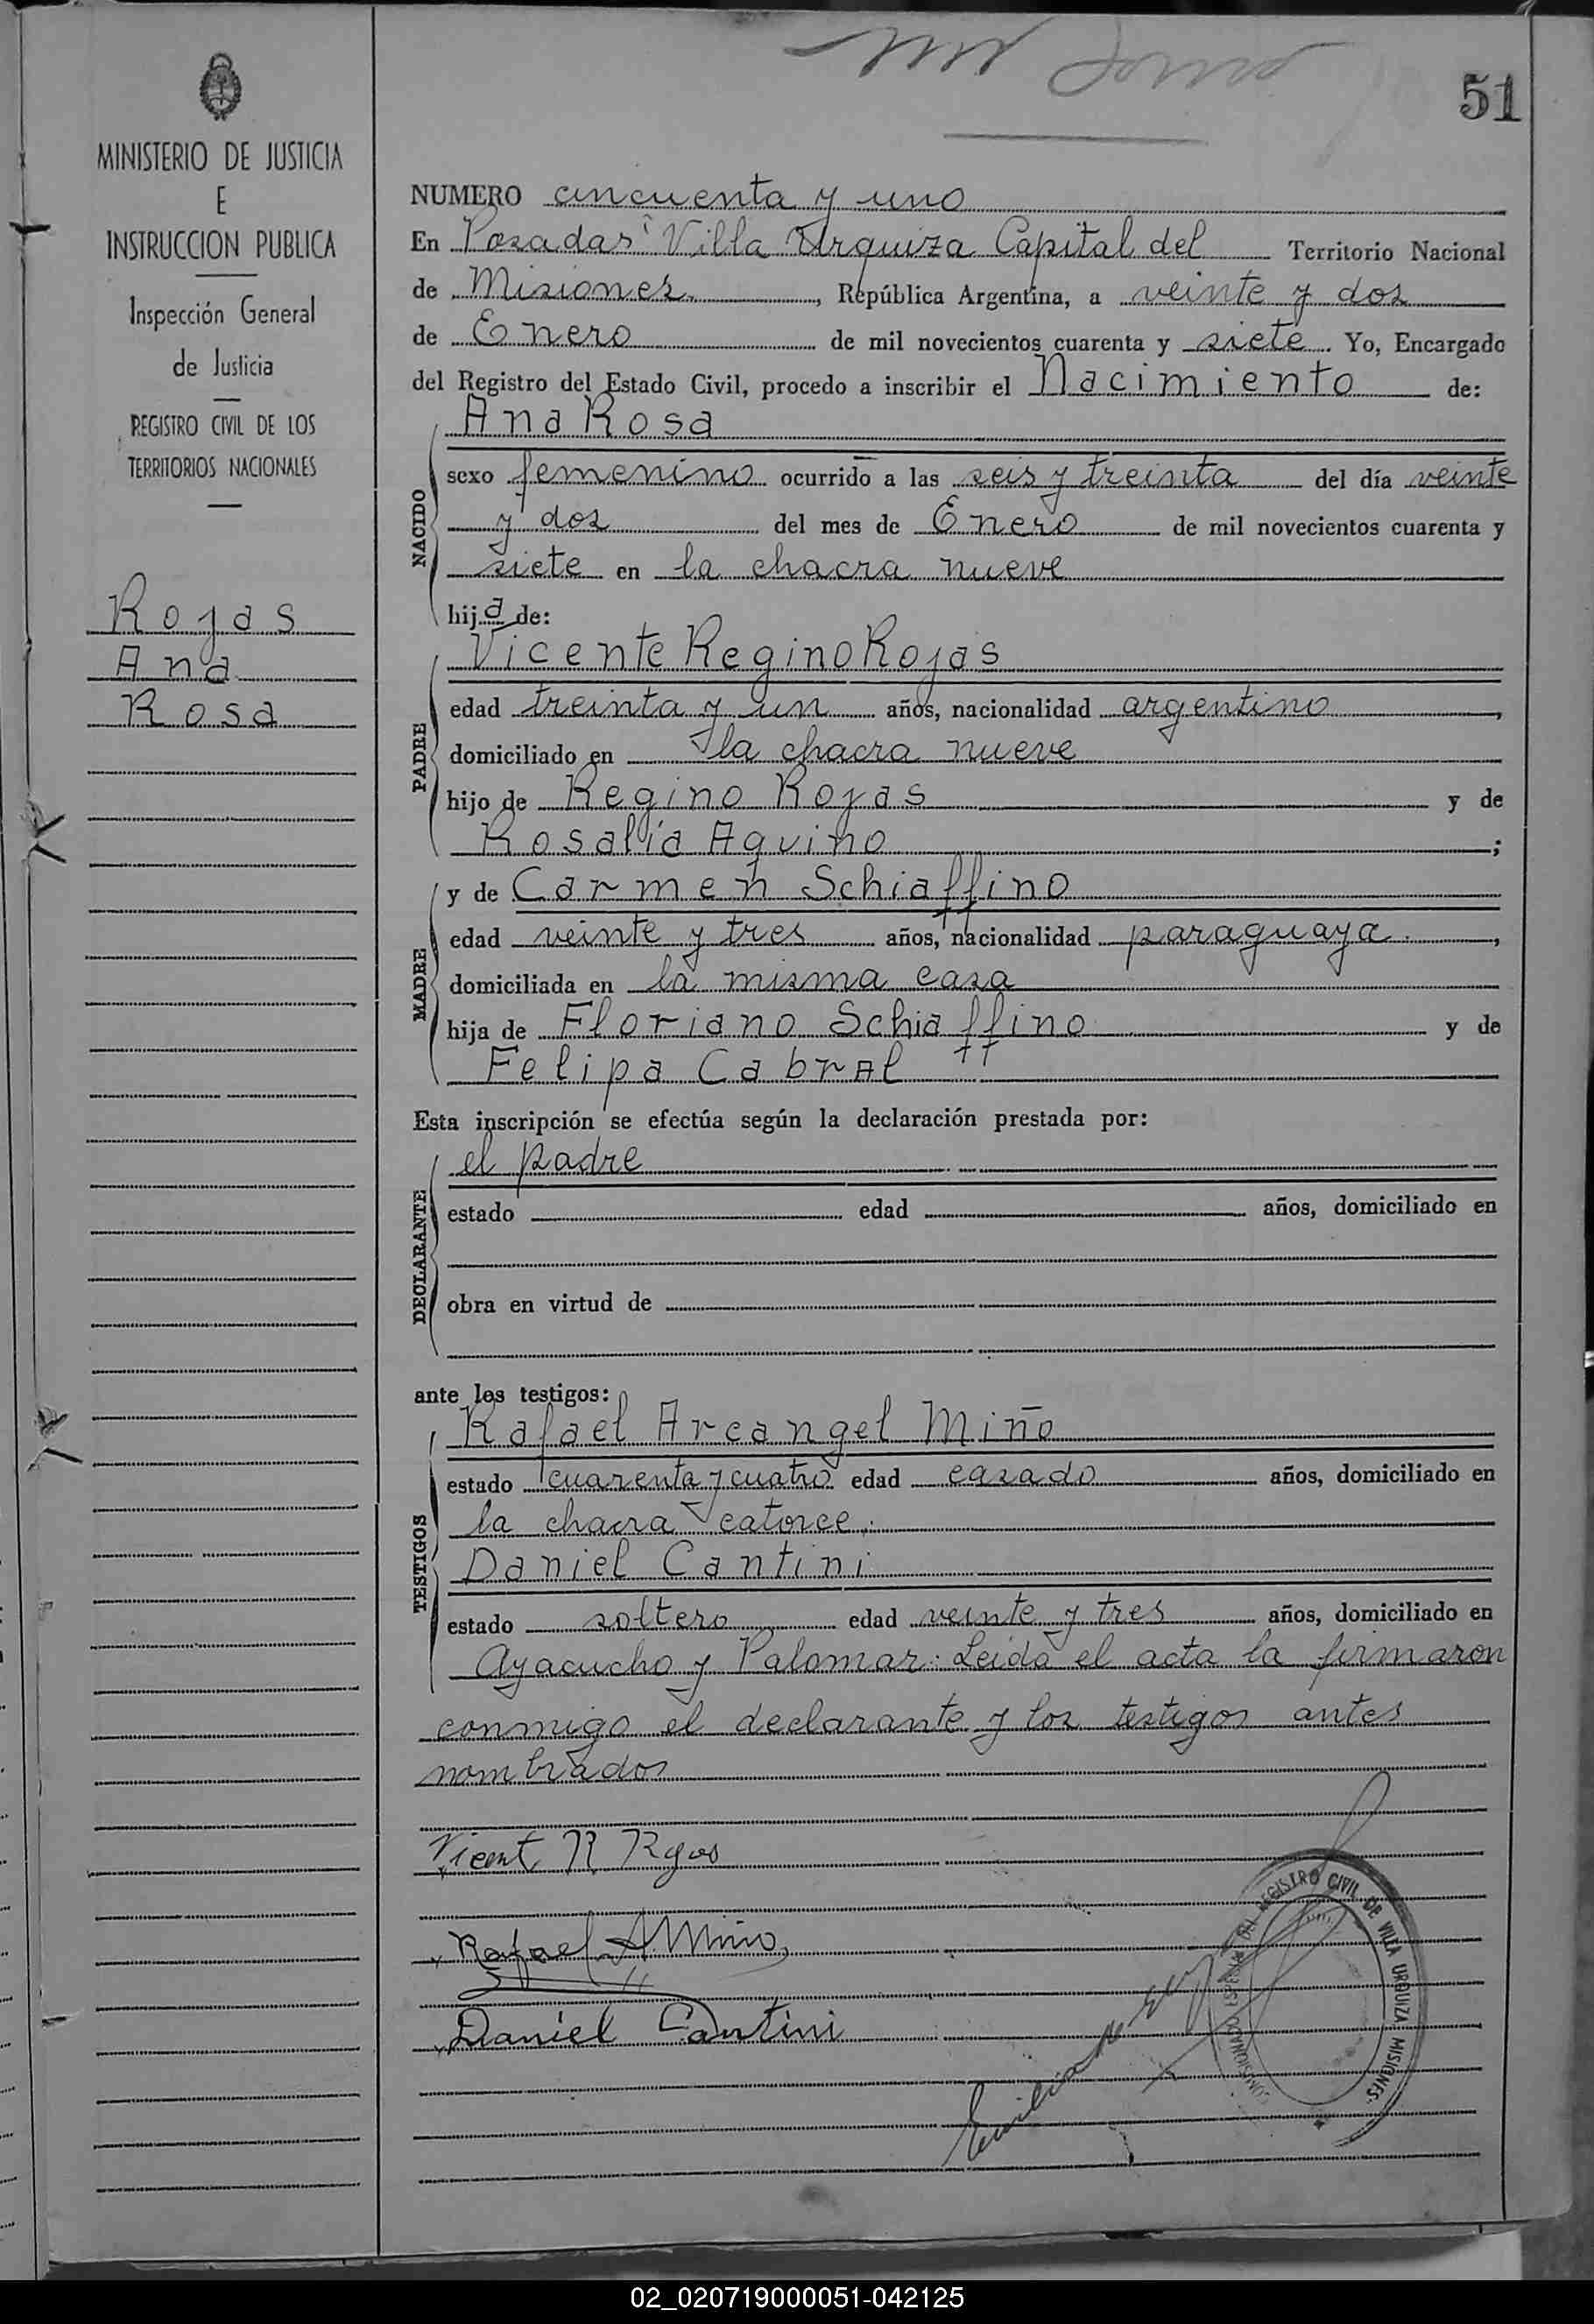 51
MINISTERIO DE JUSTICIA
E
INSTRUCCION PUBLICA
Inspección General
de Justicia
REGISTRO CIVIL DE LOS
TERRITORIOS NACIONALES
Rojas
Ana
Rosa
NUMERO cincuenta y uno
En Posadas Villa Urquiza Capital del Territorio Nacional
de Misiones, República Argentina, a veinte y dos
de Enero de mil novecientos cuarenta y siete. Yo, Encargado
del Registro del Estado Civil, procedo a inscribir el Nacimiento de:
NACIDO
Ana Rosa
sexo femenino ocurrido a las seis y treinta del día veinte
y dos del mes de Enero de mil novecientos cuarenta y
siete en la chacra nueve
hija de:
PADRE
Vicente Regino Rojas
edad treinta y un años, nacionalidad argentino,
domiciliado en la chacra nueve
hijo de Regino Rojas y de
Rosalia Aquino;
MADRE
y de Carmen Schiaffino
edad veinte y tres años, nacionalidad paraguaya,
domiciliada en la misma casa
hija de Floriano Schiaffino y de
Felipa Cabral
Esta inscripción se efectúa según la declaración prestada por:
DECLARANTE
el padre
estado edad años, domiciliado en
obra en virtud de
ante los testigos:
TESTIGOS
Rafael Arcangel Miño
estado cuarenta y cuatro edad casado años, domiciliado en
la chacra catorce.
Daniel Cantini
estado soltero edad veinte y tres años, domiciliado en
Ayacucho y Palomar. Leida el acta la firmaron
conmigo el declarante y los testigos antes
nombrados
Vicent R Rojas
Rafael A. Miño
Daniel Cantini
REGISTRO CIVIL DE VILLA URQUIZA MISIONES
02_020719000051-042125